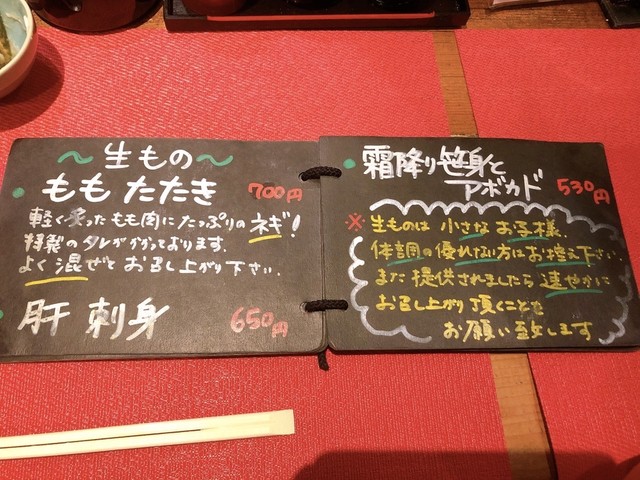 〜生もの〜
ももたたき 700円
軽く炙ったもも肉にたっぷりのネギ!
特製のタレがかかっております。
よく混ぜてお召し上がり下さい。
肝刺身 650円
霜降り笹身と
アボカド 530円
※生ものは小さなお子様、
体調の優れない方はお控え下さい。
また提供されましたら速やかに
お召し上がり頂くことを
お願い致します